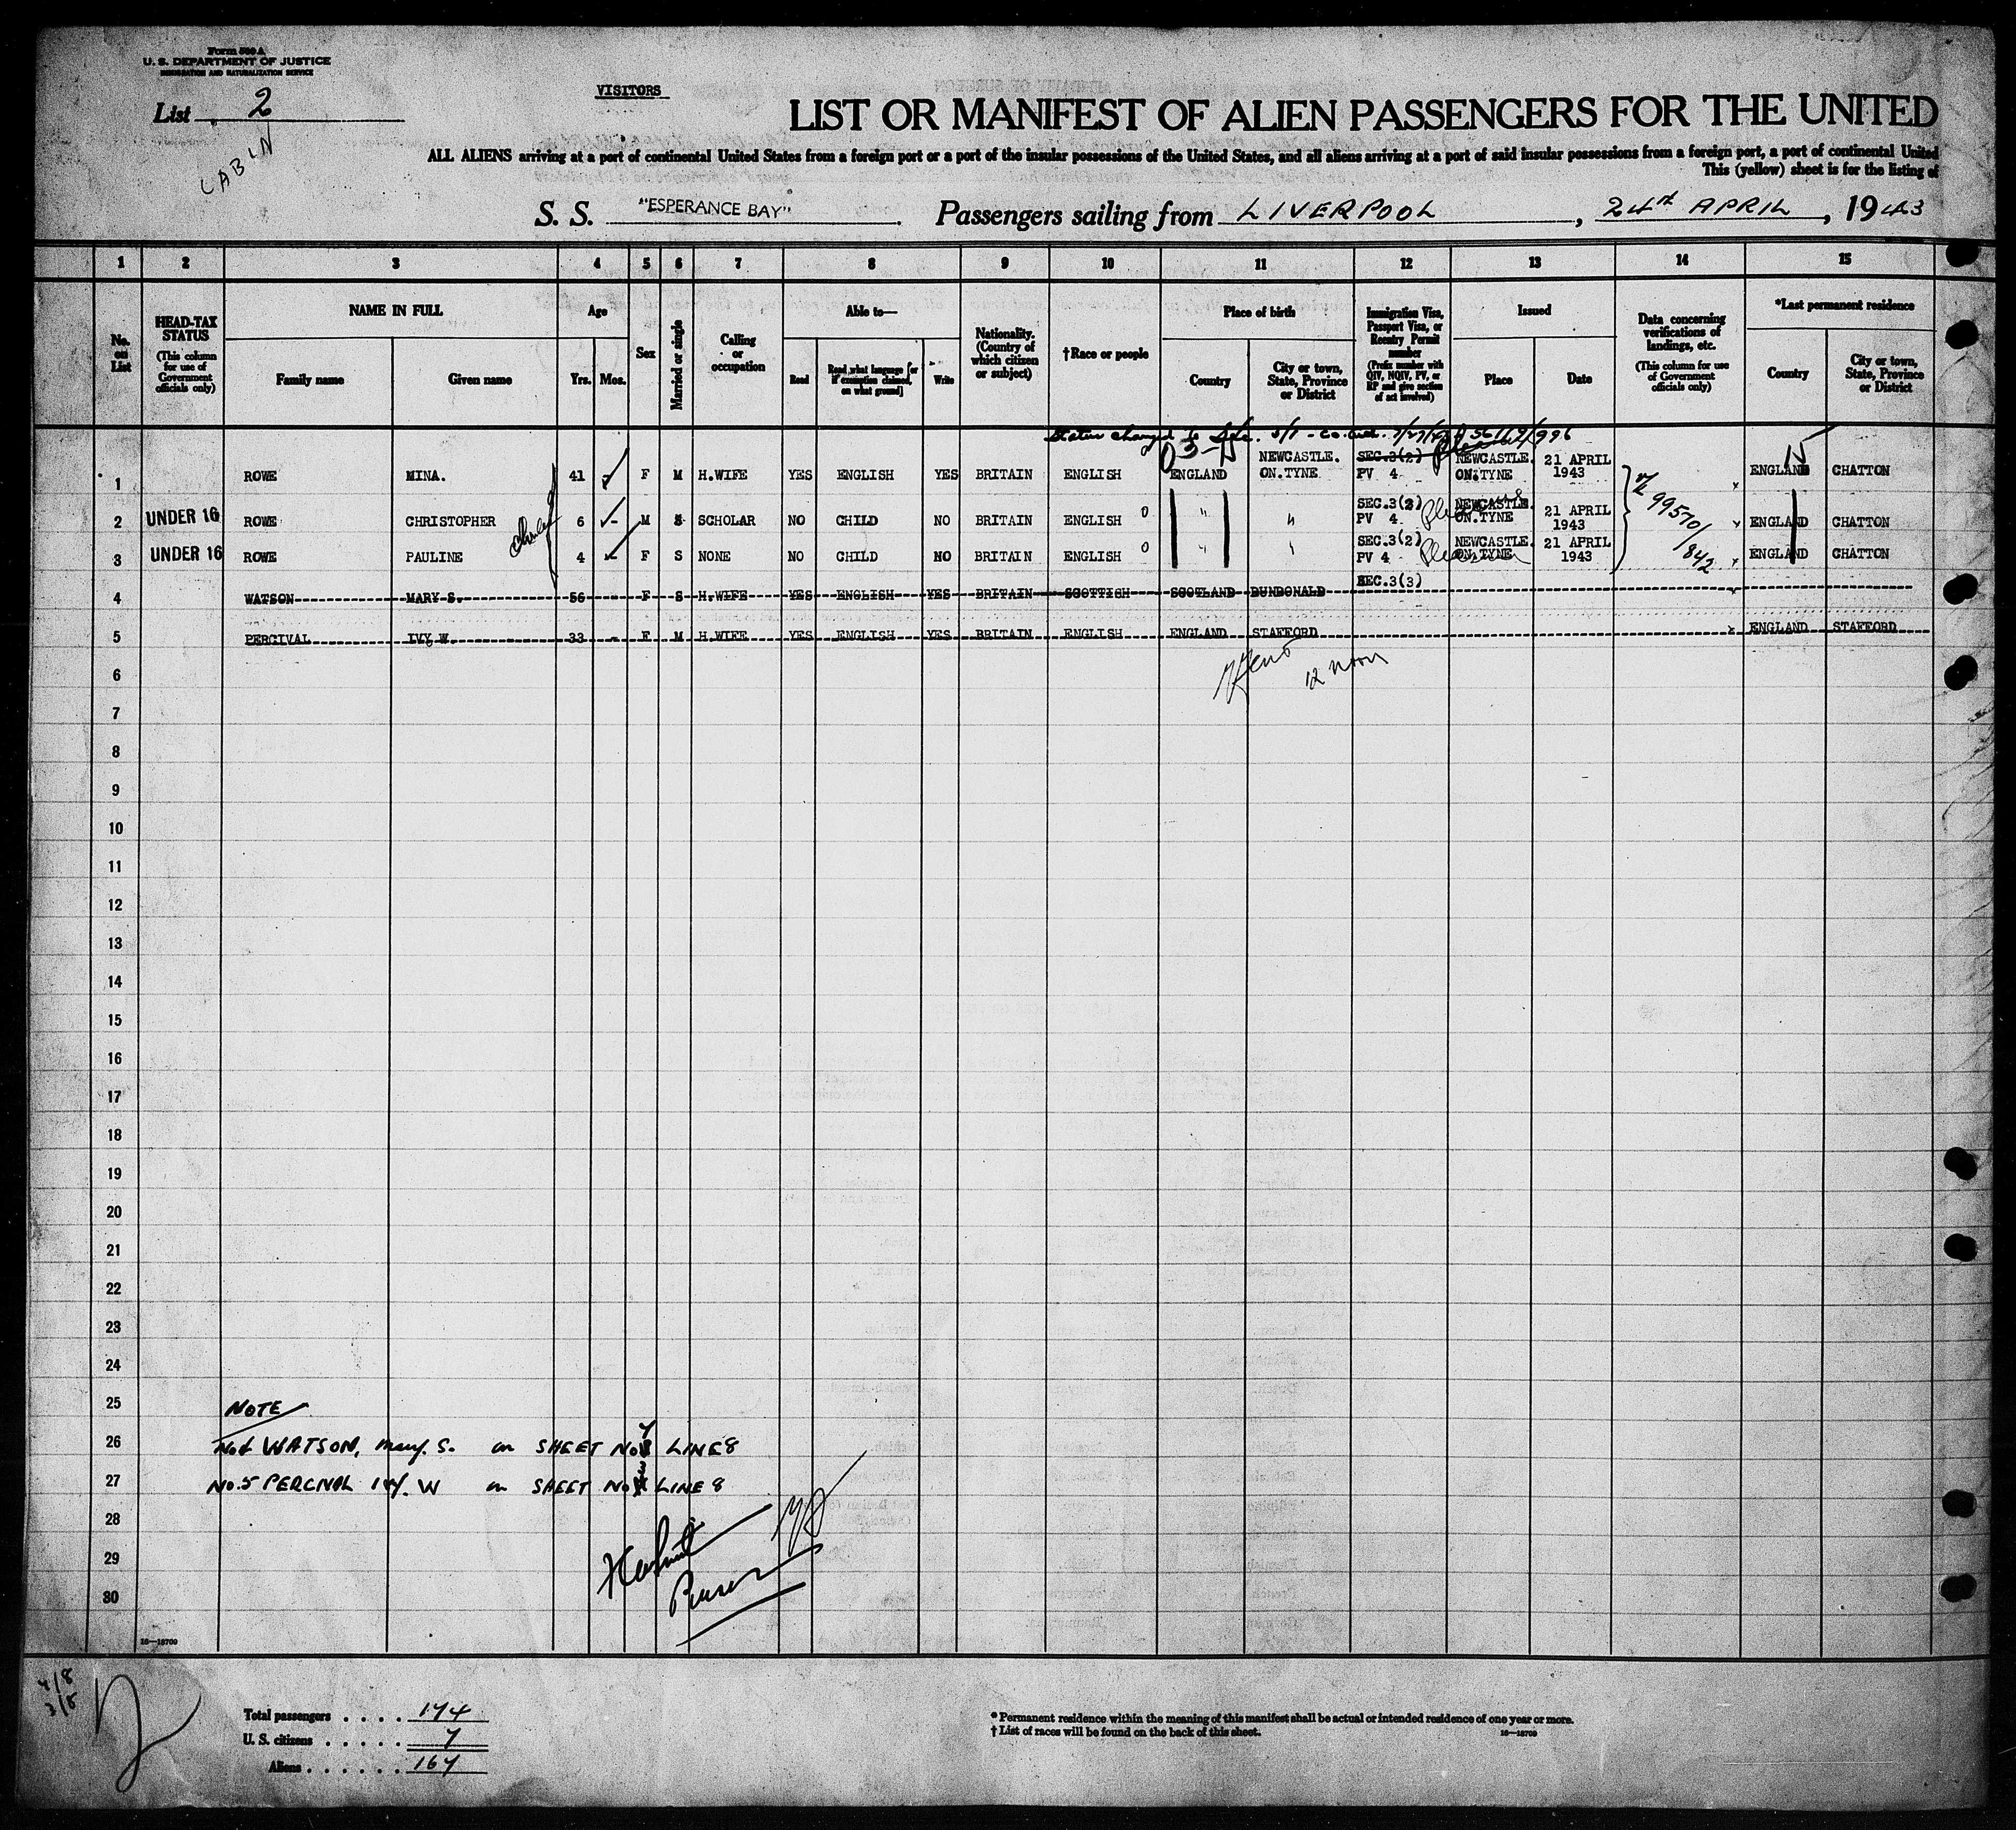 Form 500 A
U. S. DEPARTMENT OF JUSTICE
IMMIGRATION AND NATURALIZATION SERVICE
List 2
CABIN
VISITORS
LIST OR MANIFEST OF ALIEN PASSENGERS FOR THE UNITED
ALL ALIENS arriving at a port of continental United States from a foreign port or a port of the insular possessions of the United States, and all aliens arriving at a port of said insular possessions from a foreign port, a port of continental United
This (yellow) sheet is for the listing of
S. S. "ESPERANCE BAY" Passengers sailing from LIVERPOOL, 24TH APRIL, 1943
1 2 3 4 5 6 7 8 9 10 11 12 13 14 15
No. on List
HEAD-TAX STATUS
(This column for use of Government officials only)
NAME IN FULL
Family name
Given name
Age
Yrs. Mos.
Sex
Married or single
Calling or occupation
Able to—
Read
Read what language [or if exemption claimed, on what ground]
Write
Nationality. (Country of which citizen or subject)
† Race or people
Place of birth
Country
City or town, State, Province or District
Immigration Visa, Passport Visa, or Reentry Permit number
(Prefix number with QIV, NQIV, PV, or RP and give section of act involved)
Issued
Place
Date
Data concerning verifications of landings, etc.
(This column for use of Government officials only)
*Last permanent residence
Country
City or town, State, Province or District
Status changed to
03-15
1 ROWE MINA. 41 F M H.WIFE YES ENGLISH YES BRITAIN ENGLISH ENGLAND NEWCASTLE. ON.TYNE SEC.3(2) PV 4 NEWCASTLE. ON.TYNE 21 APRIL 1943 ENGLAND CHATTON
2 UNDER 16 ROWE CHRISTOPHER 6 - M S SCHOLAR NO CHILD NO BRITAIN ENGLISH " " SEC.3(2) PV 4 NEWCASTLE ON.TYNE 21 APRIL 1943 ENGLAND CHATTON
3 UNDER 16 ROWE PAULINE 4 - F S NONE NO CHILD NO BRITAIN ENGLISH " " SEC.3(2) PV 4 NEWCASTLE. ON.TYNE 21 APRIL 1943 ENGLAND CHATTON
99570/842
4 WATSON MARY S. 56 - F S H.WIFE YES ENGLISH YES BRITAIN SCOTTISH SCOTLAND DUNDONALD SEC.3(3)
5 PERCIVAL IVY W 33 - F M H.WIFE YES ENGLISH YES BRITAIN ENGLISH ENGLAND STAFFORD ENGLAND STAFFORD
12 noon
6
7
8
9
10
11
12
13
14
15
16
17
18
19
20
21
22
23
24
25 NOTE
26 No4 WATSON, Mary. S. on SHEET No 7 LINE 8
27 No.5 PERCIVAL Ivy. W on SHEET No LINE 8
28
29
30
Purser
16—18709
4/8
3/8
Total passengers . . . . 174
U. S. citizens . . . . . 7
Aliens . . . . . . 167
* Permanent residence within the meaning of this manifest shall be actual or intended residence of one year or more.
† List of races will be found on the back of this sheet.
16—18709